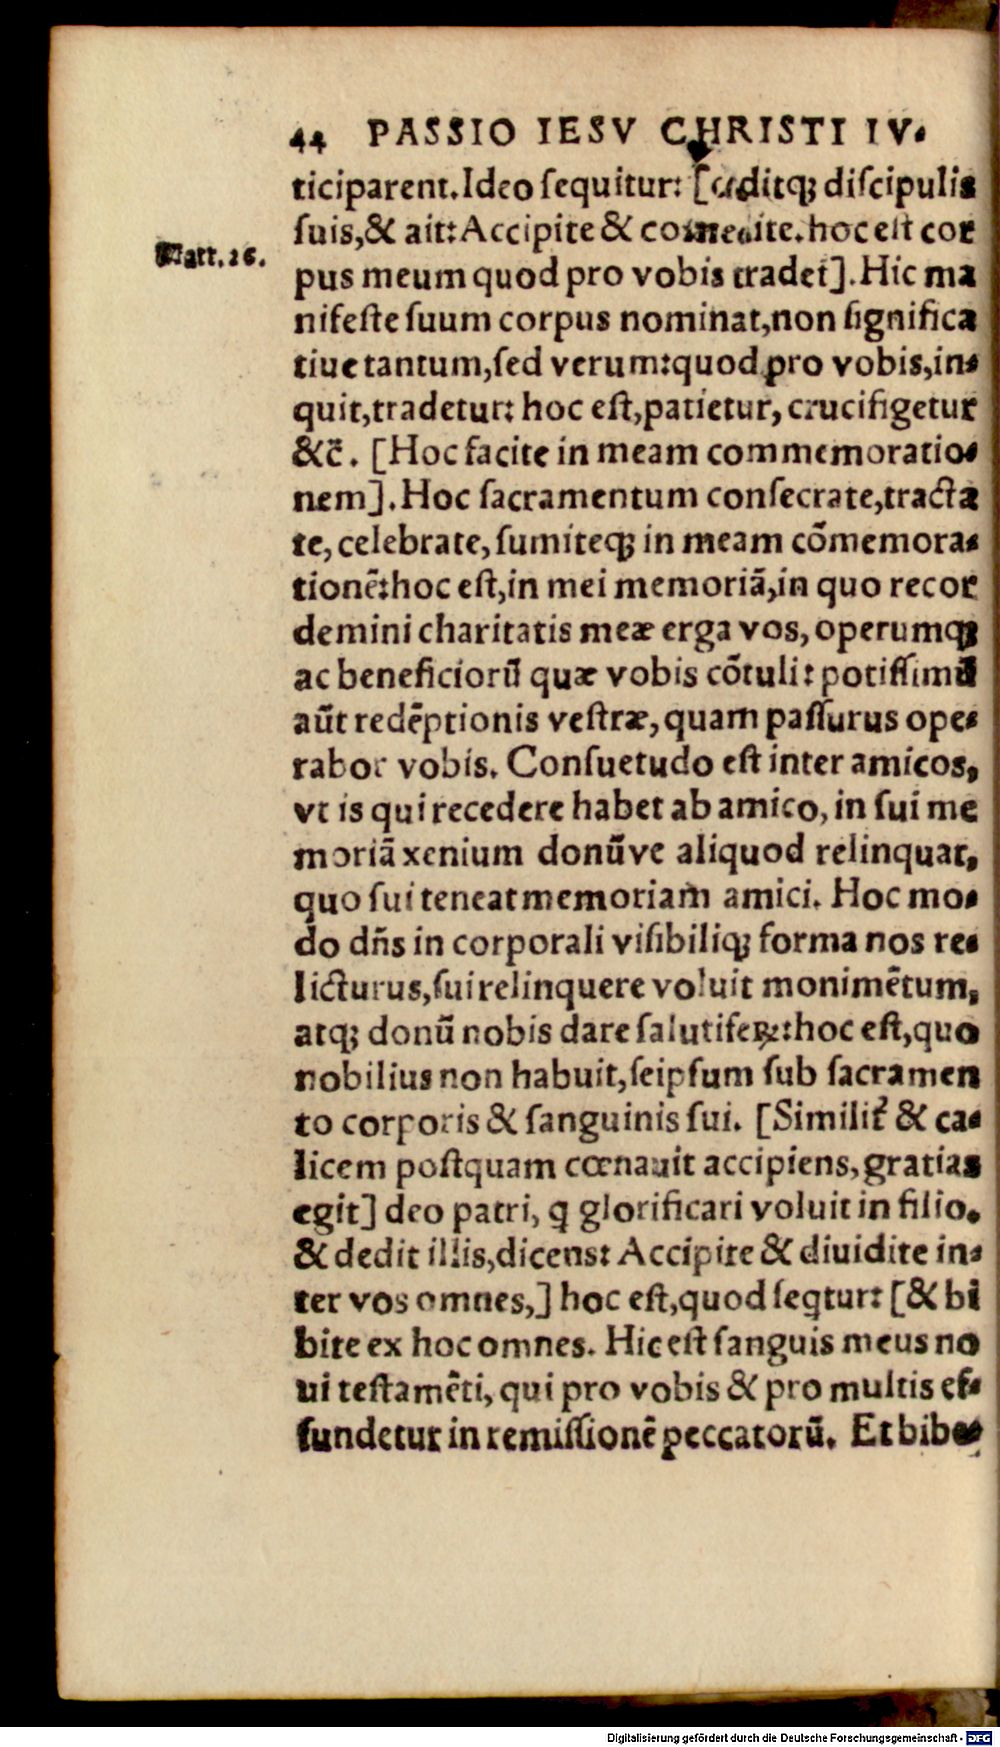 44 PASSIO IESV CHRISTI IV.
ticiparent. Ideo ſequitur: [ditq; diſcipulis
ſuis, & ait: Accipite & comedite. hoc eſt cor
Matt. 26.
pus meum quod pro vobis tradet]. Hic ma
nifeſte ſuum corpus nominat, non ſignifica
tiue tantum, ſed verum: quod pro vobis, in-
quit, tradetur: hoc eſt, patietur, crucifigetur
&c̃. [Hoc facite in meam commemoratio-
nem]. Hoc ſacramentum conſecrate, tracta
te, celebrate, ſumiteq; in meam cõmemora-
tionẽ: hoc eſt, in mei memoriã, in quo recor
demini charitatis meæ erga vos, operumq;
ac beneficiorũ quæ vobis cõtuli: potiſſimũ
aũt redẽptionis veſtræ, quam paſſurus ope-
rabor vobis. Conſuetudo eſt inter amicos,
vt is qui recedere habet ab amico, in ſui me
moriã xenium donũve aliquod relinquat,
quo ſui teneat memoriam amici. Hoc mo-
do dñs in corporali viſibiliq; forma nos re-
licturus, ſui relinquere voluit monimẽtum,
atq; donũ nobis dare ſalutiferꝝ: hoc eſt, quo
nobilius non habuit, ſeipſum ſub ſacramen
to corporis & ſanguinis ſui. [Similit̉ & ca-
licem poſtquam cœnauit accipiens, gratias
egit] deo patri, q̃ glorificari voluit in filio.
& dedit illis, dicens: Accipite & diuidite in-
ter vos omnes,] hoc eſt, quod ſeq̃tur: [& bi
bite ex hoc omnes. Hic eſt ſanguis meus no
ui teſtamẽti, qui pro vobis & pro multis ef-
fundetur in remiſſionẽ peccatorũ. Et bibe-
Digitalisierung gefördert durch die Deutsche Forschungsgemeinschaft - DFG